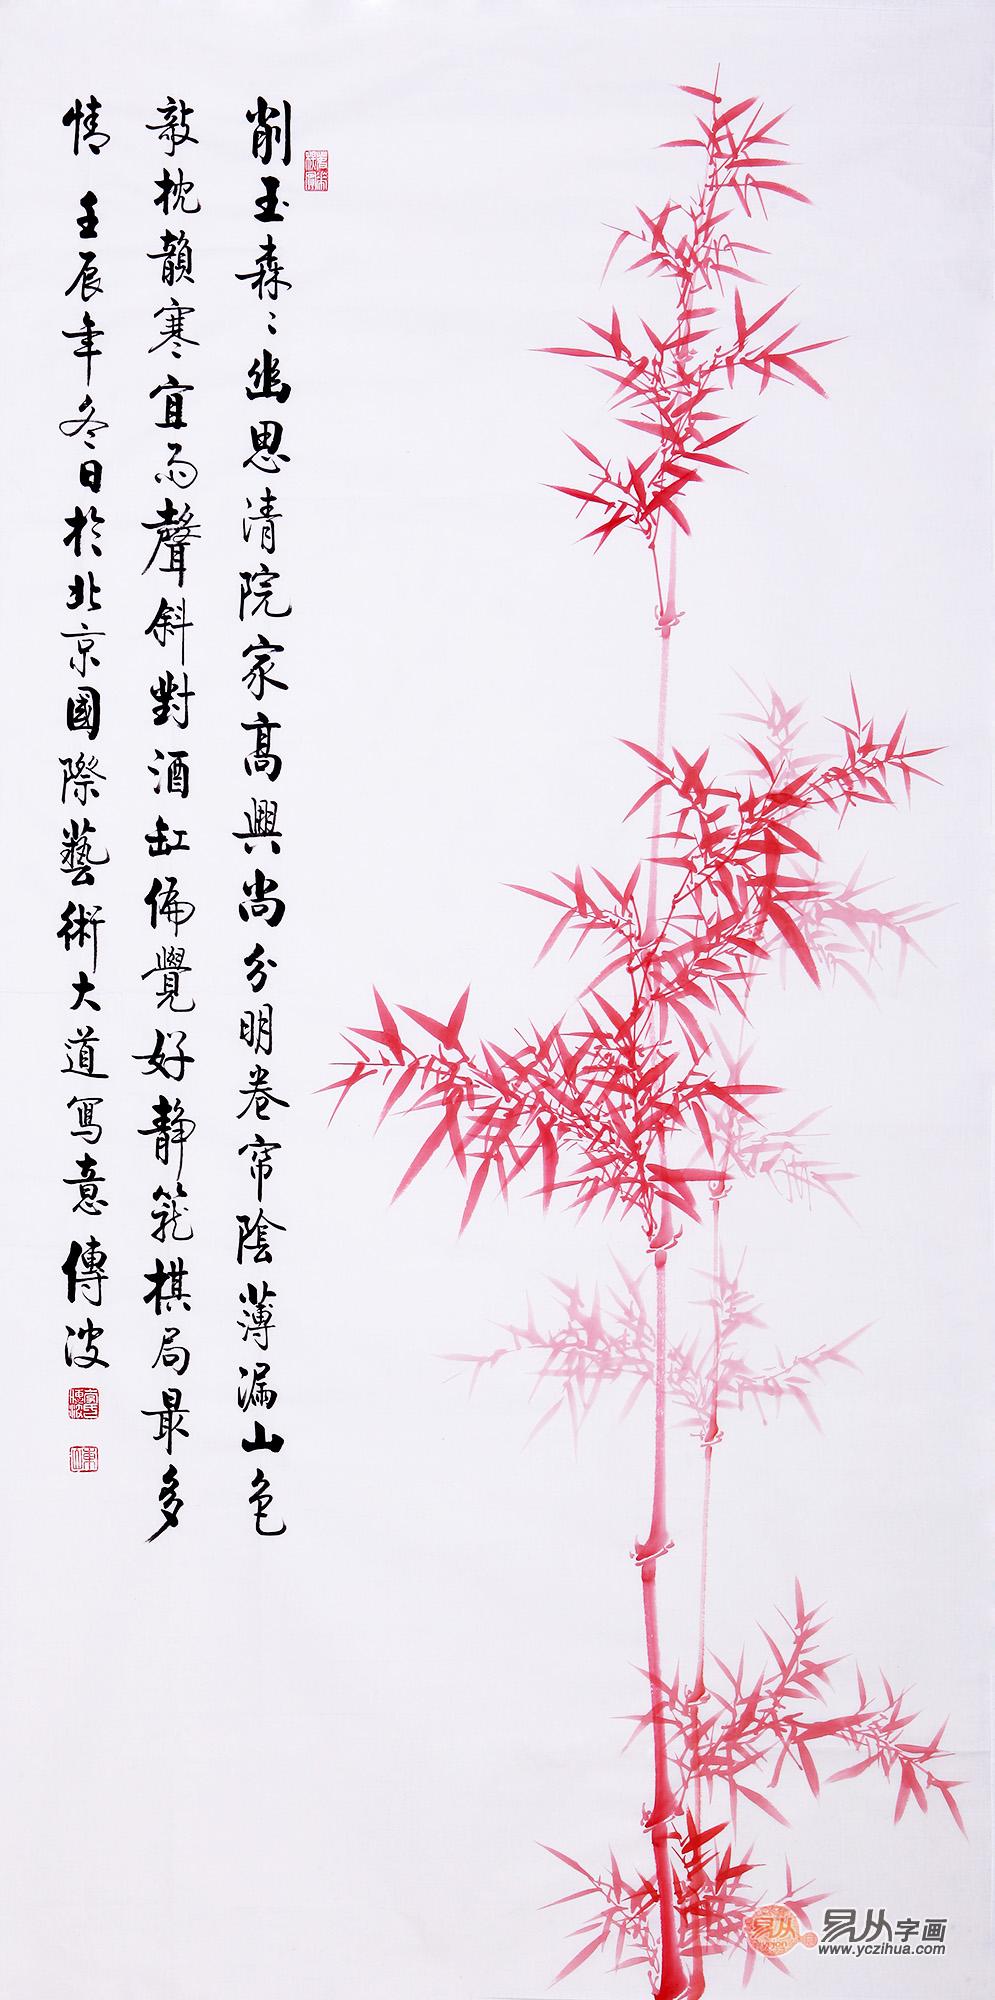 削玉森〻幽思清院家高興尚分明卷帘陰薄漏山色
敲枕韻寒宜雨聲斜對酒缸偏覺好静籠棋局最多
情 壬辰年冬日於北京國際藝術大道寫意傳波
易从字画
www.yczihua.com